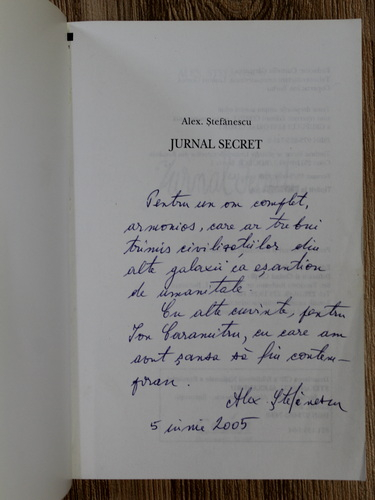 Alex. Ștefănescu
JURNAL SECRET
Pentru un om complet,
armonios, care ar trebui
trimis civilizațiilor din
alte galaxii ca eșantion
de umanitate.
Cu alte cuvinte, pentru
Ion Caramitru, cu care am
avut șansa să fiu contem-
poran.
Alex. Ștefănescu
5 iunie 2005